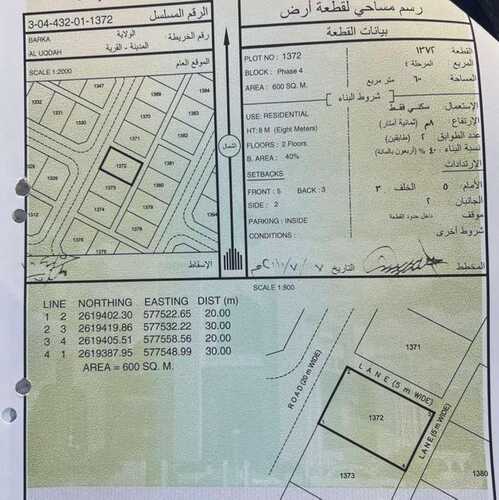 رسم مساحي لقطعة أرض
الرقم المسلسل
3-04-432-01-1372
BARKA الولاية رقم الخريطة
AL UQDAH المدينة - القرية
SCALE 1:2000 الموقع العام
1332
1331
1347
1371
1384
1330
1372
1373
1374
1375
1376
1312
1379
1378
1377
الإسقاط
الشمال
بيانات القطعة
PLOT NO : 1372 القطعة ١٣٧٢
BLOCK : Phase 4 المربع المرحلة ٤
AREA : 600 SQ. M. المساحة ٦٠٠ متر مربع
شروط البناء
USE: RESIDENTIAL الإستعمال: سكني فقط
HT: 8 M (Eight Meters) الإرتفاع ٨م (ثمانية أمتار)
FLOORS : 2 Floors عدد الطوابق ٢ (طابقين)
B. AREA : 40% نسبة البناء ٤٠ % (أربعون بالمائة)
SETBACKS الإرتدادات
FRONT : 5 BACK : 3 الأمام: ٥ الخلف ٣
SIDE : 2 الجانبان ٢
PARKING : INSIDE موقف داخل حدود القطعة
CONDITIONS : شروط أخرى
المخطط التاريخ
SCALE 1:800
LINE NORTHING EASTING DIST (m)
1 2 2619402.30 577522.65 20.00
2 3 2619419.86 577532.22 30.00
3 4 2619405.51 577558.56 20.00
4 1 2619387.95 577548.99 30.00
AREA = 600 SQ. M.
1371
LANE (5 m WIDE)
ROAD (20 m WIDE)
1372
LANE (5 m WIDE)
1373
1380